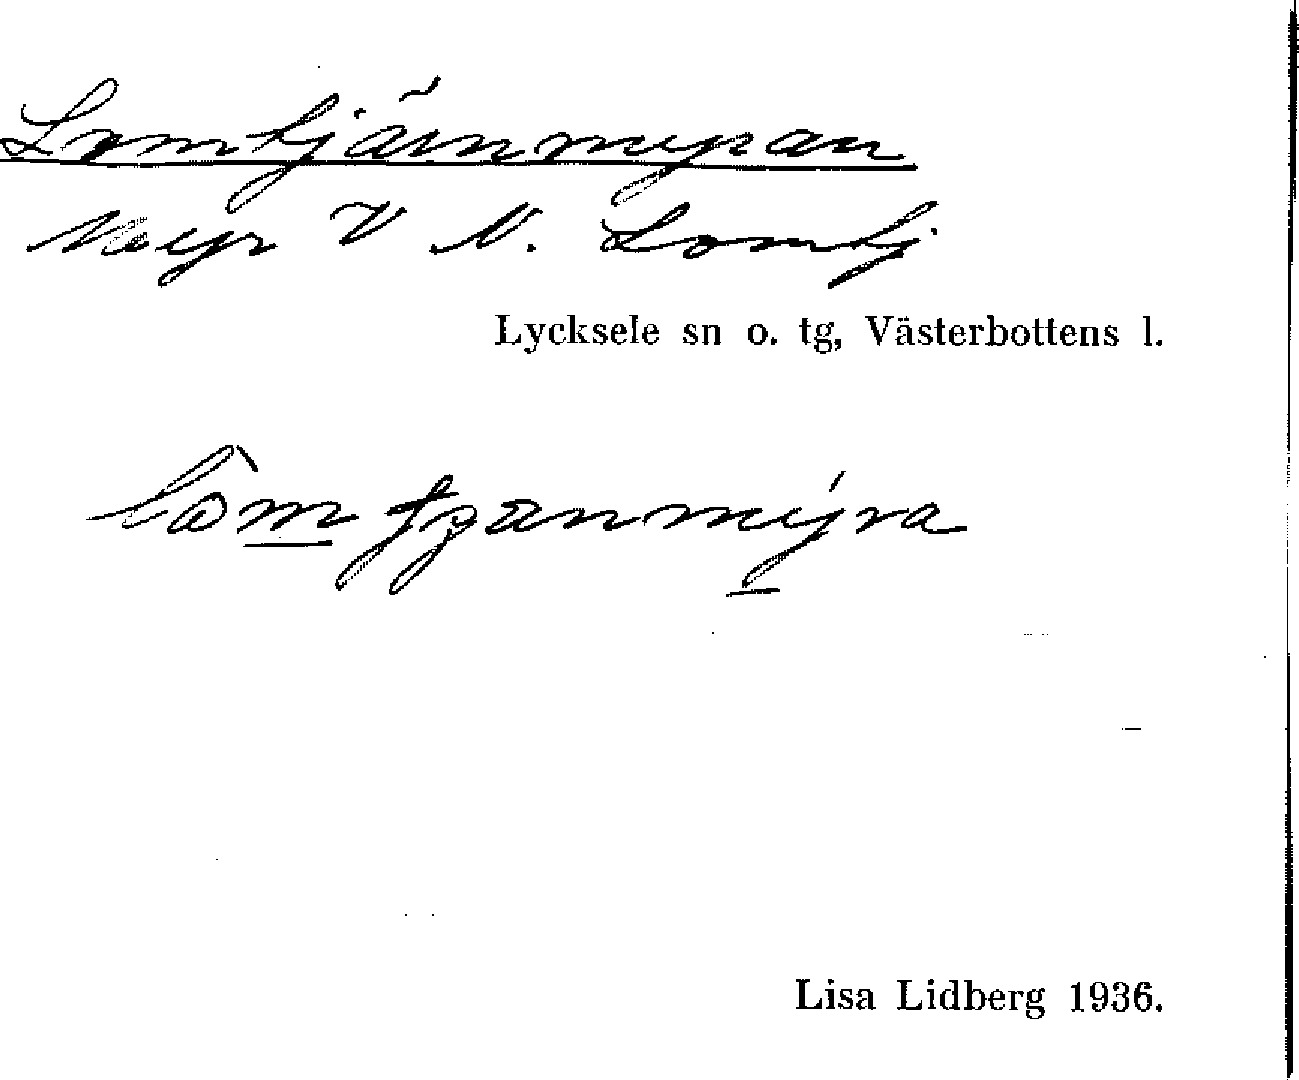 Lomtjärnmyran
Myr V N. Lomtj
Lycksele sn o. tg, Västerbottens l.
Lisa Lidberg 1936.